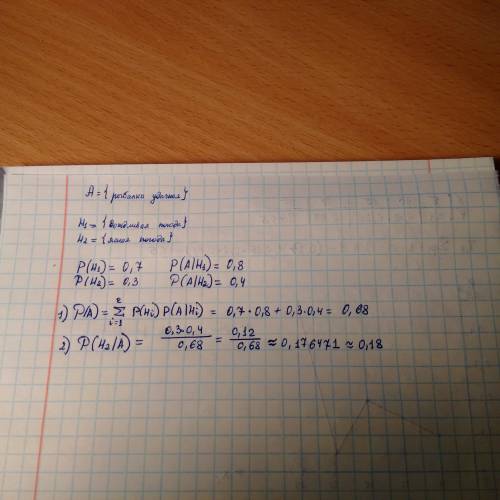 A = {рыбалка удачная}
H₁ = {дождливая погода}
H₂ = {ясная погода}
P(H₁) = 0,7 P(A|H₁) = 0,8
P(H₂) = 0,3 P(A|H₂) = 0,4
1) P(A) = ∑ᵢ₌₁² P(Hᵢ) P(A|Hᵢ) = 0,7·0,8 + 0,3·0,4 = 0,68
2) P(H₂|A) = 0,3·0,4/0,68 = 0,12/0,68 ≈ 0,176471 ≈ 0,18